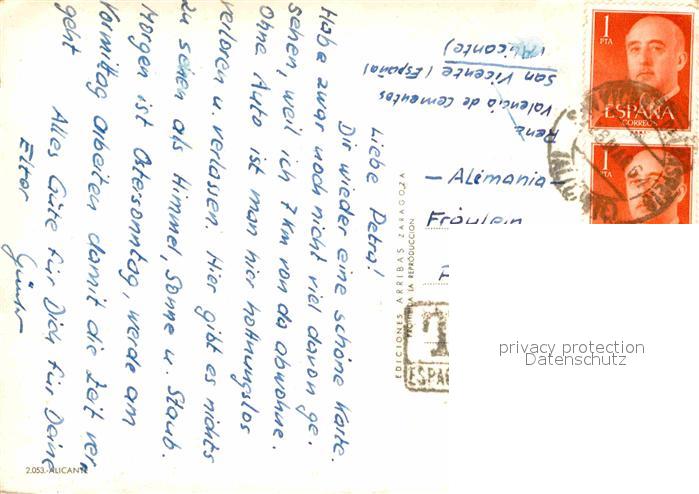 Liebe Petra!
Dir wieder eine schöne Karte.
Habe zwar noch nicht viel davon ge-
sehen, weil ich 7 km von da abwohne.
Ohne Auto ist man hier hoffnungslos
verloren u. verlassen. Hier gibt es nichts
zu sehen als Himmel, Sonne u. Staub.
Morgen ist Ostersonntag, werde am
Vormittag arbeiten damit die Zeit ver-
geht
Alles Gute für Dich für Deine
Elter
Günter
2.053.-ALICANTE
EDICIONES ARRIBAS ZARAGOZA
PROHIBIDA LA REPRODUCCION
Renz
Valencia de cementos
San Vicente (España)
(Alicante)
- Alemania -
Fräulein
1
PTA
ESPAÑA
CORREOS
1
PTA
ESPAÑ
privacy protection
Datenschutz